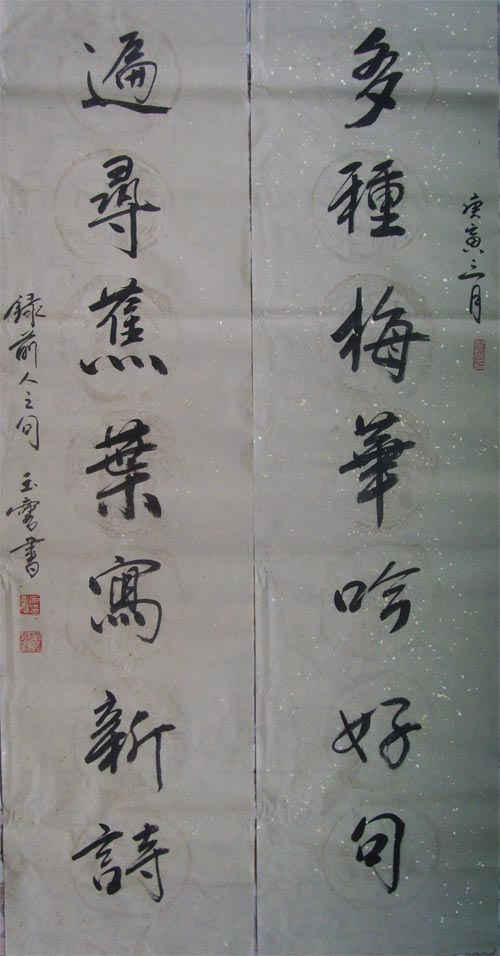 庚寅三月
多種梅華吟好句
遍尋蕉葉寫新詩
錄前人之句 玉書